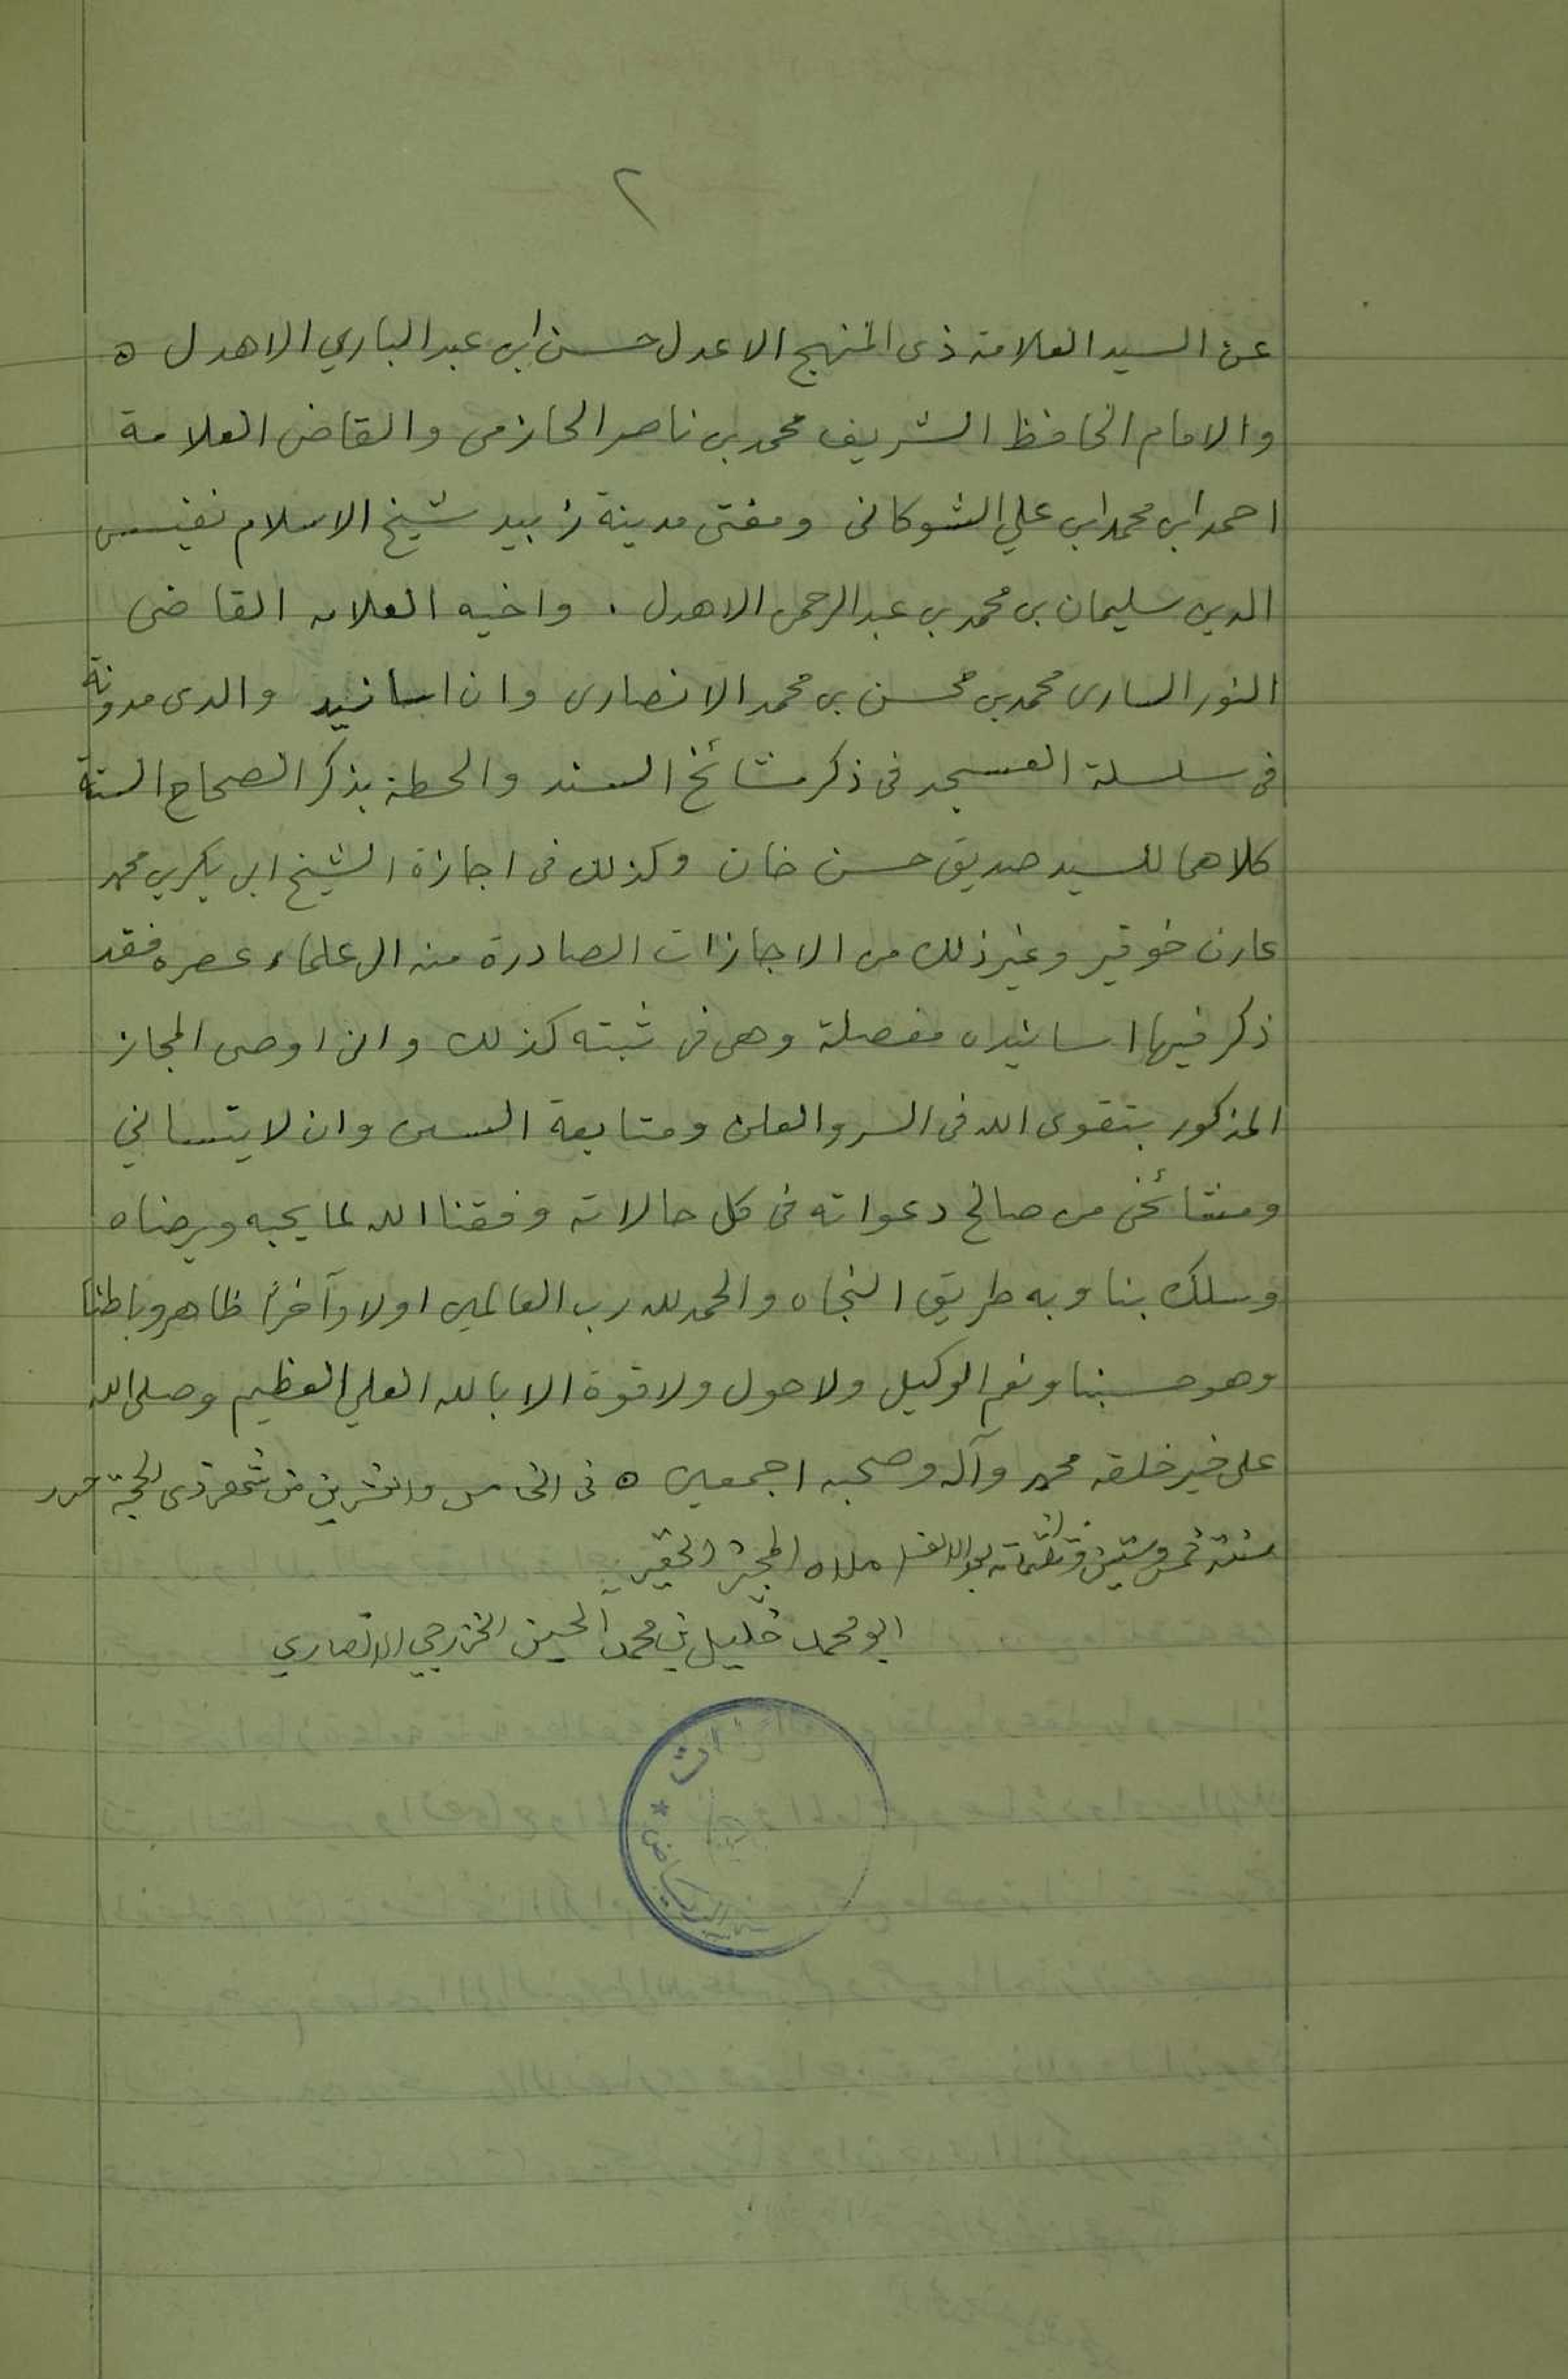 ٢
عن السيد العلامة ذى المنهج الاعدل حسن ابن عبد الباري الاهدل ه
والامام الحافظ الشريف محمد بن ناصر الحازمى والقاضى العلامة
احمد ابن محمد ابن علي الشوكانى ومفتى مدينة زبيد شيخ الاسلام نفيس
الدين سليمان بن محمد بن عبد الرحمن الاهدل . واخيه العلامه القاضى
النور السارى محمد بن محسن بن محمد الانصارى وان اسانيد والدى مدونة
فى سلسلة العسجد فى ذكر مشائخ السند والحطة بذكر الصحاح الستة
كلاهما للسيد صديق حسن خان وكذلك فى اجازة الشيخ ابى بكر بن محمد
عارف خوقير وغير ذلك من الاجازات الصادرة منه الى علماء عصره فقد
ذكر فيها اسانيده مفصلة وهى فى ثبته كذلك وانى اوصى المجاز
المذكور بتقوى الله فى السر والعلن ومتابعة السنن وان لا يتساني
ومشائخى من صالح دعواته فى كل حالاته وفقنا الله لما يحبه ويرضاه
وسلك بنا وبه طريق النجاه والحمد لله رب العالمين اولا وآخراً ظاهر وباطنا
وهو حسبنا ونعم الوكيل ولا حول ولا قوة الا بالله العلي العظيم وصلى الله
على خير خلقه محمد وآله وصحبه اجمعين ه فى الخامس والعشرين من شهر ذى الحجة حرر
سنة خمس وستين وثلثمائة بعد الالف املاه المجيز الحقير
ابو محمد خليل بن محمد الحسين الخزرجي الانصاري
الرياض